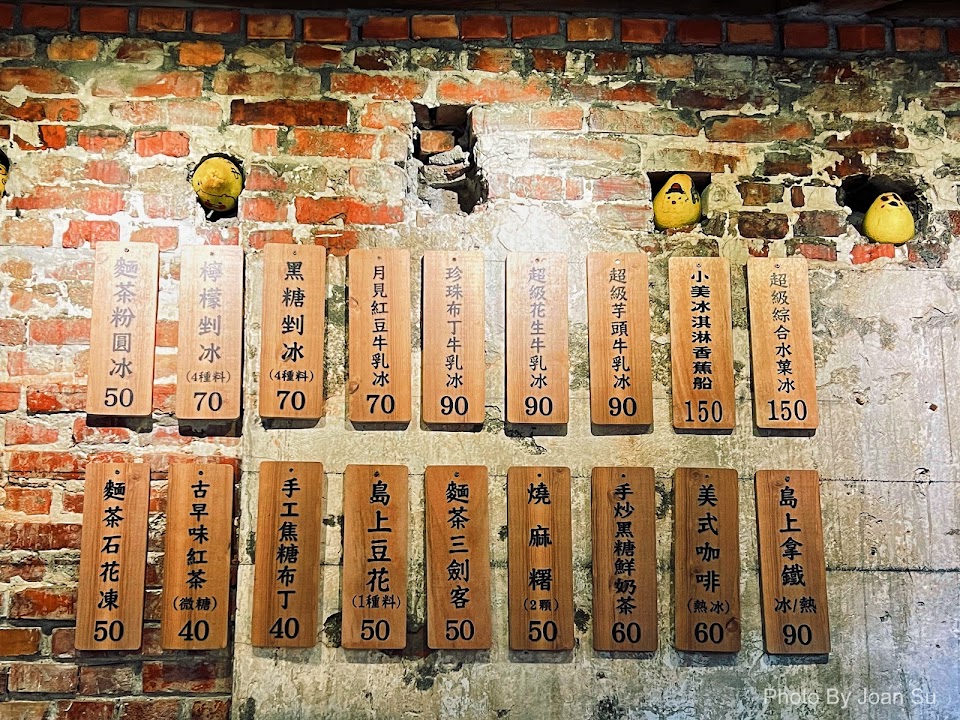 麵茶粉圓冰
50
檸檬剉冰
(4種料)
70
黑糖剉冰
(4種料)
70
月見紅豆牛乳冰
70
珍珠布丁牛乳冰
90
超級花生牛乳冰
90
超級芋頭牛乳冰
90
小美冰淇淋香蕉船
150
超級綜合水菓冰
150
麵茶石花凍
50
古早味紅茶
(微糖)
40
手工焦糖布丁
40
島上豆花
(1種料)
50
麵茶三劍客
50
燒麻糬
(2顆)
50
手炒黑糖鮮奶茶
60
美式咖啡
(熱冰)
60
島上拿鐵
冰/熱
90
Photo By Joan Su